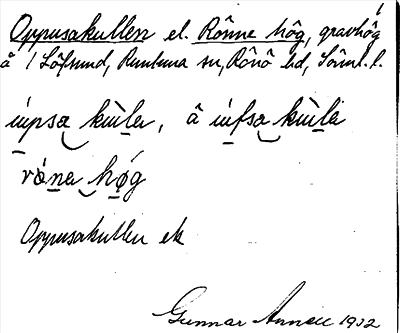 Oppusakullen el. Rönne hög, gravhög
å 1 Löfsund, Rentuna sn, Rönö hd, Söml. l.
ùpsa kùla, å ùfsa kùla
ròna hǿg
Oppusakullen ek
Gunnar Annell 1932